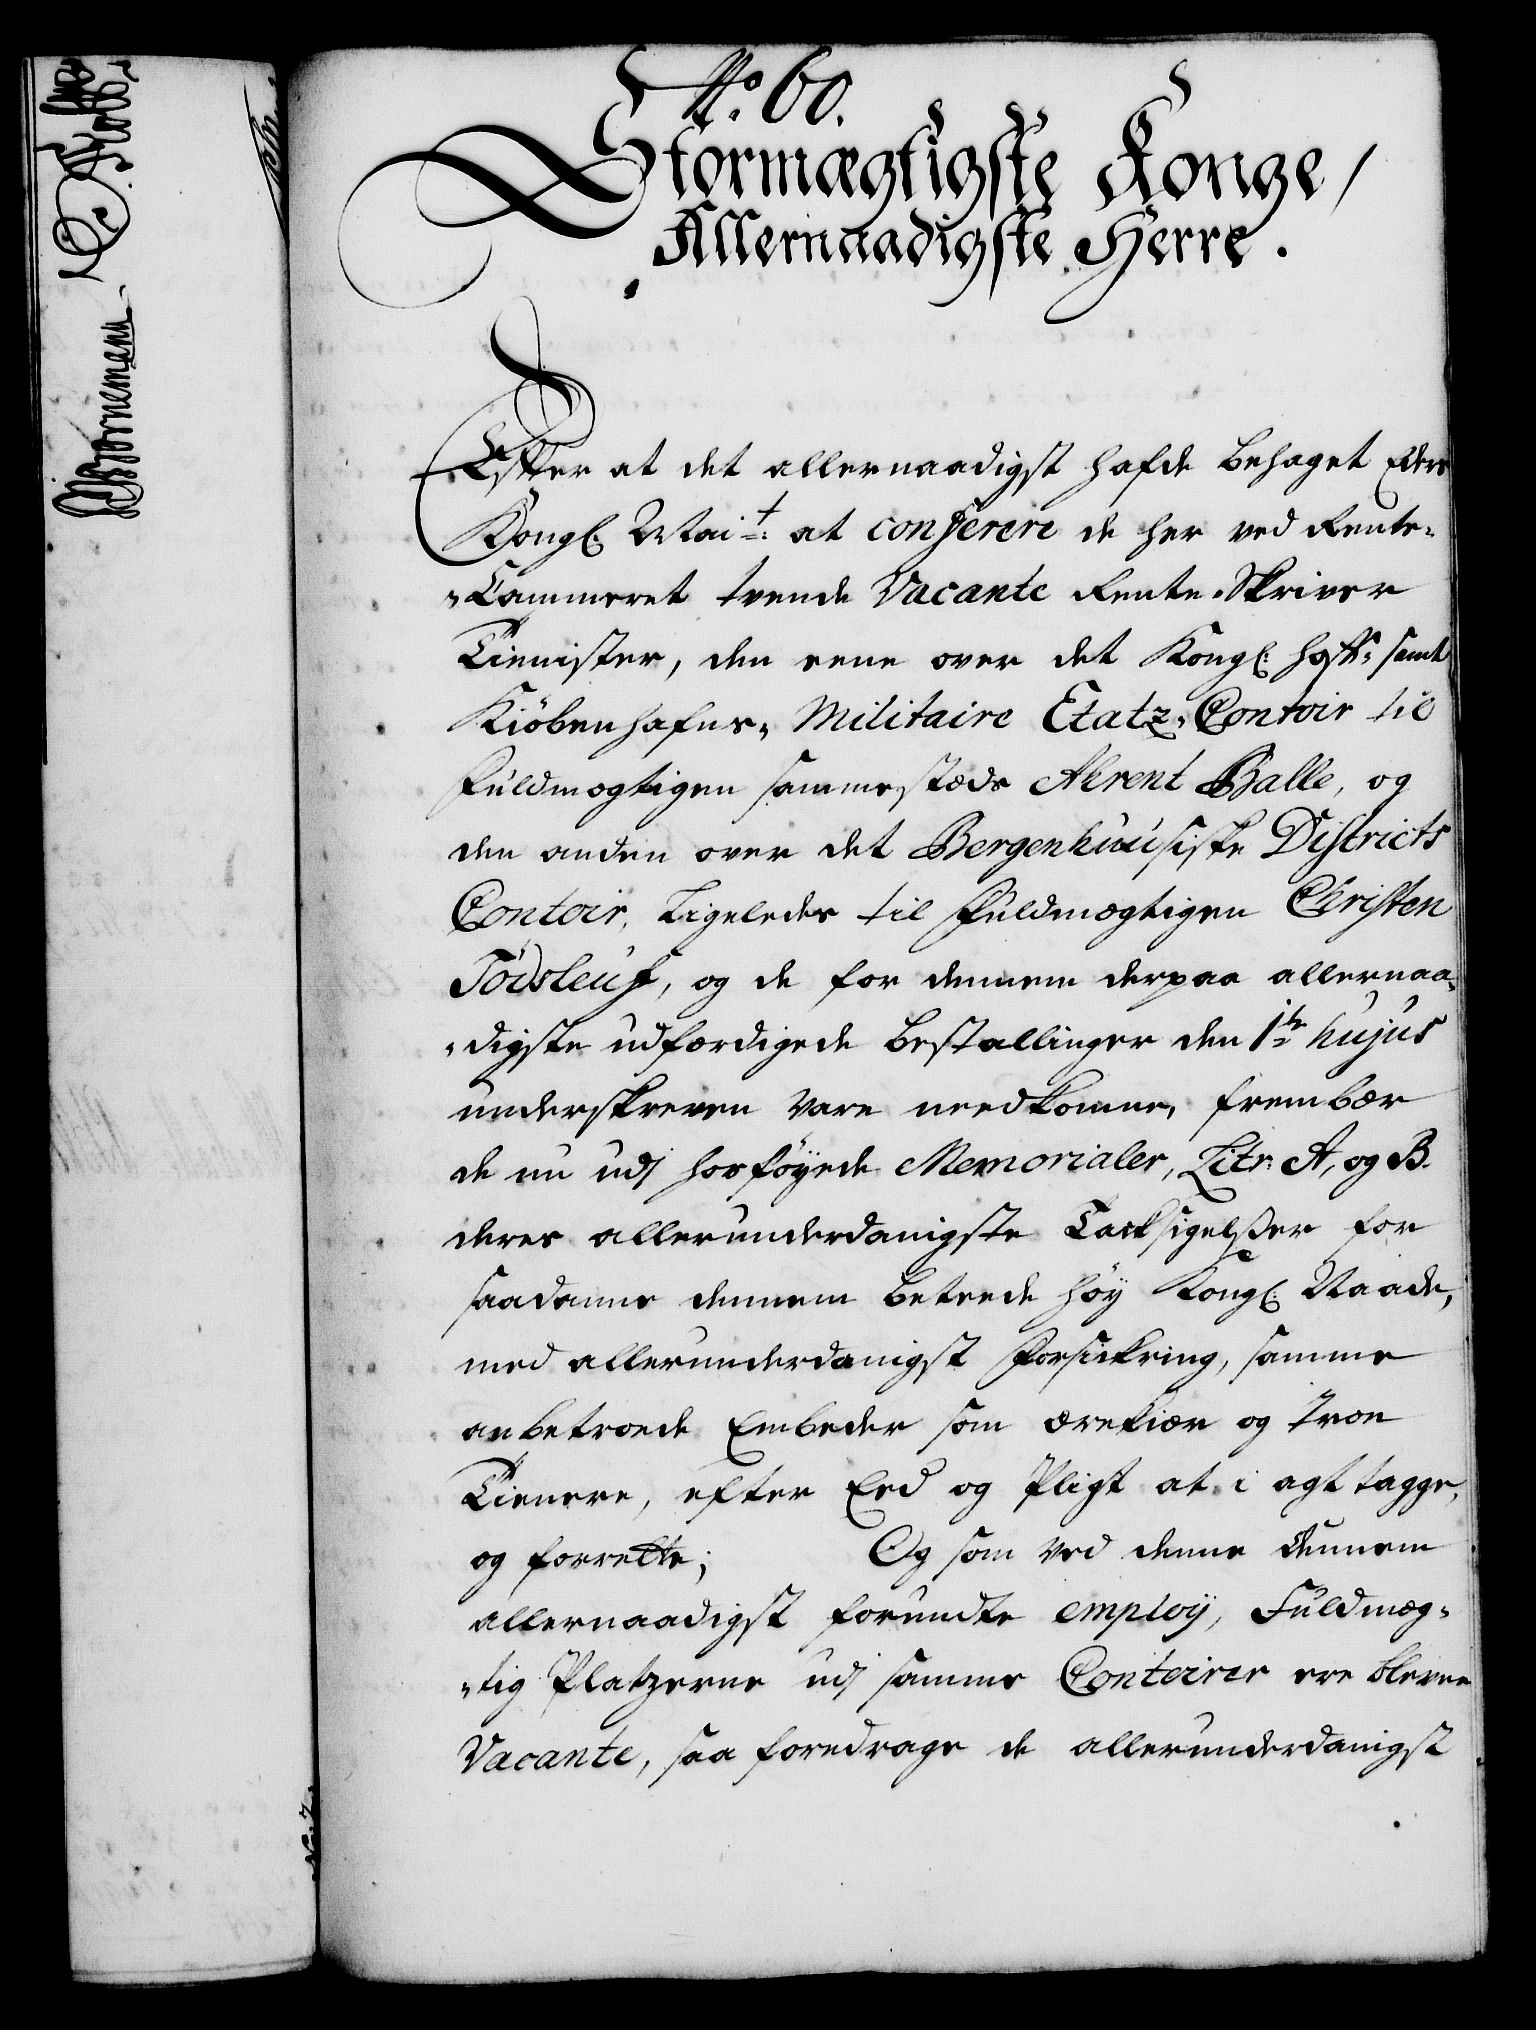 No. 60.
Stormægtigste Konge/
Allernaadigste Herre.
Efter at det allernaadigst hafde behaget Eders
Kongl: Mait: at conferere de her ved Rente-
-Cammeret tvende Vacante Rente-Skriver
Tienister, den eene over det Kongl: Hoff- samt
Kiöbenhafns- Militaire Etatz-Contoir til
Fuldmægtigen sammestæds Ahrent Balle, og
den anden over det Bergenhuusiske Districts
Contoir, Ligeledes til Fuldmægtigen Christen
Todsleuf, og de for dennem derpaa allernaa-
-digste udfærdigede Bestallinger den 1te hujus
underskreven vare needkomne, frembær
de nu udj hosföyede Memorialer, Litr: A, og B.
deres allerunderdanigste Tacksigelsser for
saadanne dennem beteede höy Kongl: Naade,
med allerunderdanigst Forsickring, samme
anbetroede Embeder som ærekiær og troe
Tienere, efter Eed og Pligt at i agt tagge,
og forrette; Og som ved denne dennem
allernaadigst forundte employ, Fuldmæg-
-tig Platzerne udj samme Contoirer ere blevne
Vacante, saa foredrage de allerunderdanigst
Bornemann